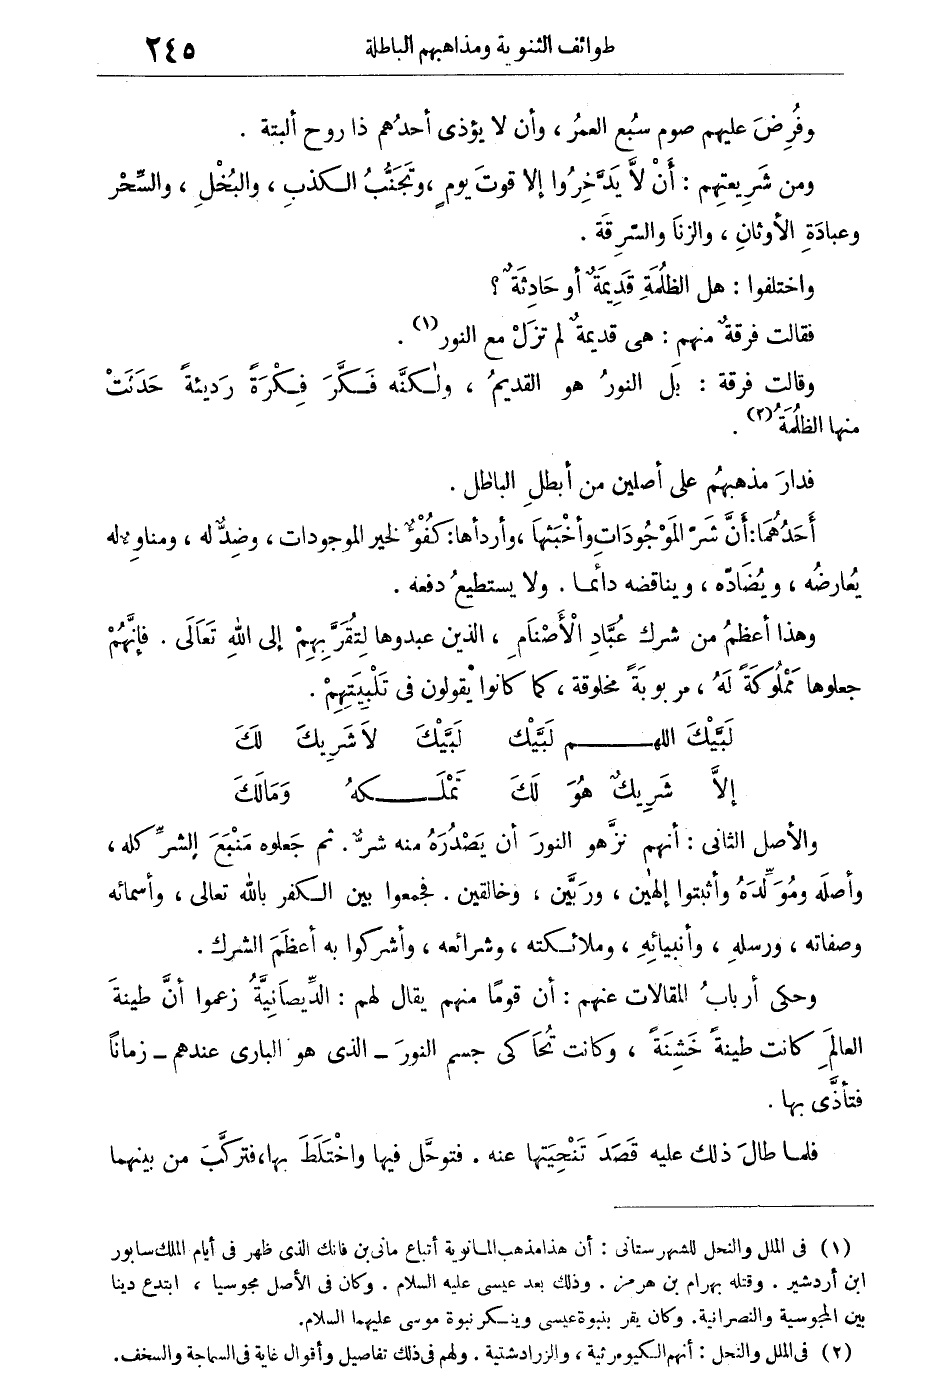 طوائف الثنوية ومذاهبهم الباطلة ٢٤٥
وفُرِضَ عليهم صوم سبُع العمرُ ، وأن لا يؤذى أحدُهم ذا روح ألبتة .
ومن شَرِيعتِهم : أَنْ لاَّ يَدَّخِرُوا إلا قوتَ يوم ٍ، وتَجَنُّبُ الكذبِ ، والبُخْلِ ، والسِّحْرِ
وعبادَةِ الأوثانِ ، والزنَا والسّرِقَة .
واختلفوا : هل الظلُمَةِ قَدِيمَةٌ أو حَادِثَةٌ ؟
فقالت فرقةٌ منهم : هى قديمةٌ لم تزَلْ مع النور (١) .
وقالت فرقة : بَل النورُ هو القديمُ ، ولٰكنَّه فَكَّرَ فِكْرَةً رَدِيئةً حَدَثَتْ
منها الظلُمَةُ (٢) .
فدارَ مذهبهُم على أصلين من أبطلِ الباطل .
أَحَدُهُمَا : أَنَّ شَرّ المَوْجُودَاتِ وأخْبَثهَا ، وأردأها : كُفُوْءٌ لخير الموجودات ، وضِدٌّ له ، ومناوٍ له
يُعارضُه ، ويُضَادّه ، ويناقضه دائما . ولا يستطيعُ دفعه .
وهذا أعظمُ من شرك عُبَّادِ الْأَصْنَامِ ، الذين عبدوها لِتُقَرِّبهِمْ إلى اللهِ تَعَالَى . فإنَّهُمْ
جعلوها مَمْلُوكَةً لَهُ ، مربوبَةً مخلوقة ، كما كانوا يقولون فى تَلْبِيَتِهِمْ .
لَبَّيْكَ اللهم لَبَّيْك لَبَّيْكَ لاَ شَرِيكَ لَكَ
إلاَّ شَرِيكٌ هُوَ لَكَ تَمْلَكهُ وَمَالَكَ
والأصل الثانى : أنهم نزَّهو النورَ أن يَصْدُرَهُ منه شرٌّ . ثم جعلوه مَنْبَعَ الشرِّ كله ،
وأصلَه ومُوَلِّدَهُ وأثبتوا إلٰهين ، وربَّين ، وخالقين . فجمعوا بين الكفر بالله تعالى ، وأسمائه
وصفاته ، ورسلهِ ، وأنبيائِهِ ، وملائكته ، وشرائعه ، وأشركوا به أعظَمَ الشرك .
وحكى أربابُ المقالات عنهم : أن قومًا منهم يقال لهم : الدِّيصانِيَّةُ زعموا أنَّ طينةَ
العالَمِ كانت طينةً خَشِنَةً ، وكانت تُحَاكى جسم النورَ ــ الذى هو البارى عندهم ــ زماناً
فتأذَّى بها .
فلما طالَ ذلك عليه قَصَدَ تَنْحِيَتها عنه . فتوحَّل فيها واخْتَلَطَ بها ، فتركَّبَ من بينهما
(١) فى الملل والنحل للشهرستانى : أن هذا مذهب المانوية أتباع مانى بن فاتك الذى ظهر فى أيام الملك سابور
ابن أردشير . وقتله بهرام بن هرمز . وذلك بعد عيسى عليه السلام . وكان فى الأصل مجوسيا ، ابتدع دينا
بين المجوسية والنصرانية. وكان يقر بنبوة عيسى وينكر نبوة موسى عليهما السلام.
(٢) فى الملل والنحل : أنهم الكيومرثية ، والزرادشتية . ولهم فى ذلك تفاصيل وأقوال غاية فى السماجة والسخف.